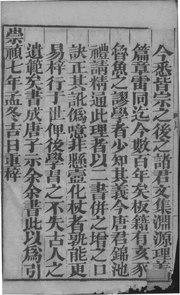 今悉皆宗之後之諸君文集淵源理義
篇章雷同迄今數百年矣板籍有亥豕
魯魚之謬學者少知其義今唐君錦池
禮請精通此理者以二書併之增之口
訣正其訛偽意非懸壺化杖者孰能更
易梓行于世俾後學者之不失古人之
遺範矣書成唐子示余余書此以為引
崇禎七年孟冬吉日重梓